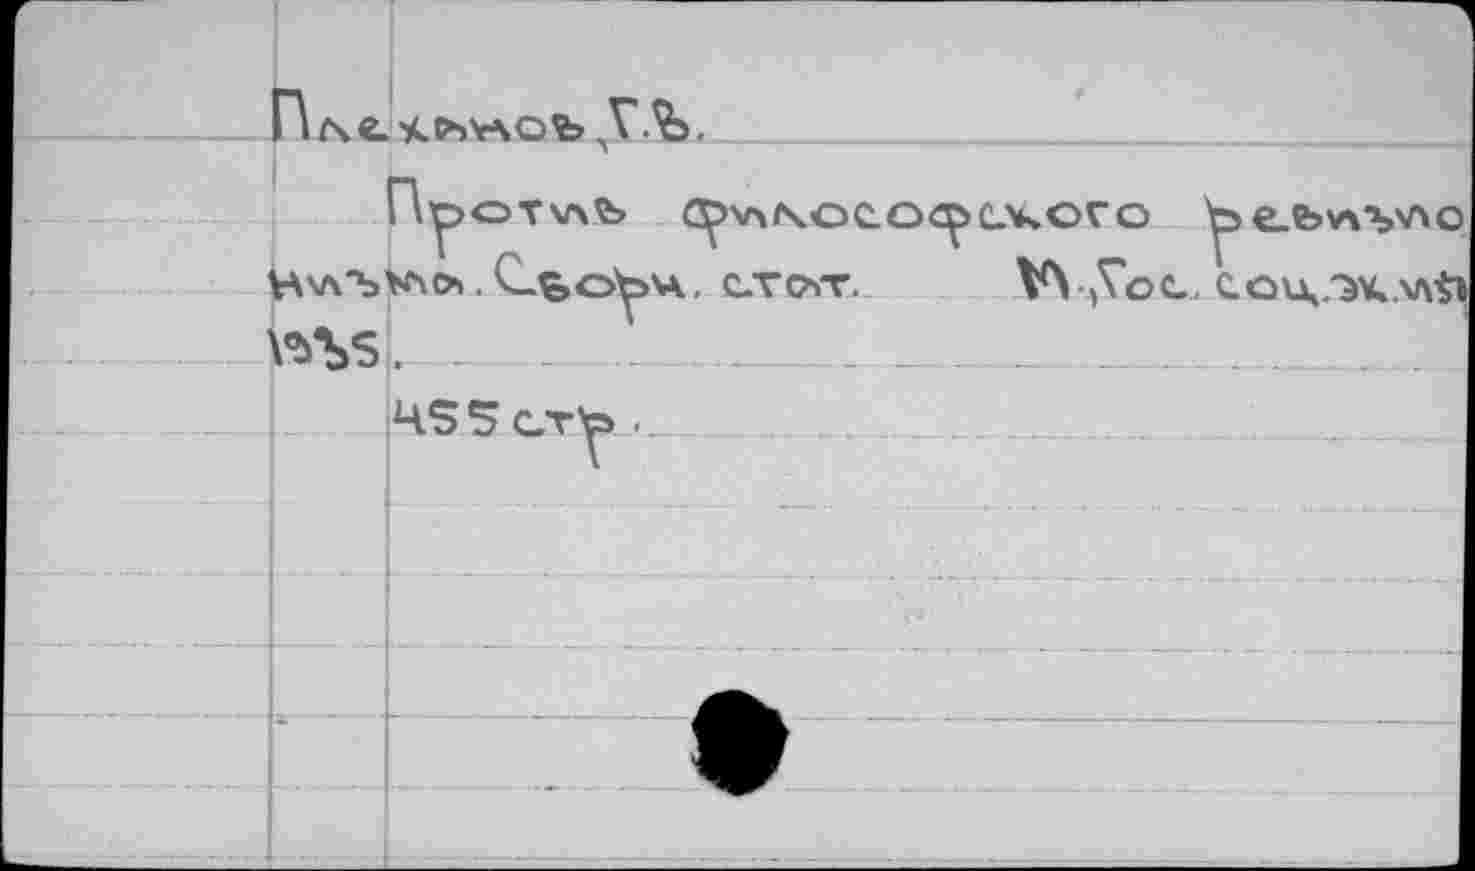 Плеханов,Г.В.
Против философского ревизио
низма. Сборн. стат. М.,Гос. соц.эк.изд
1935.
455 стр.